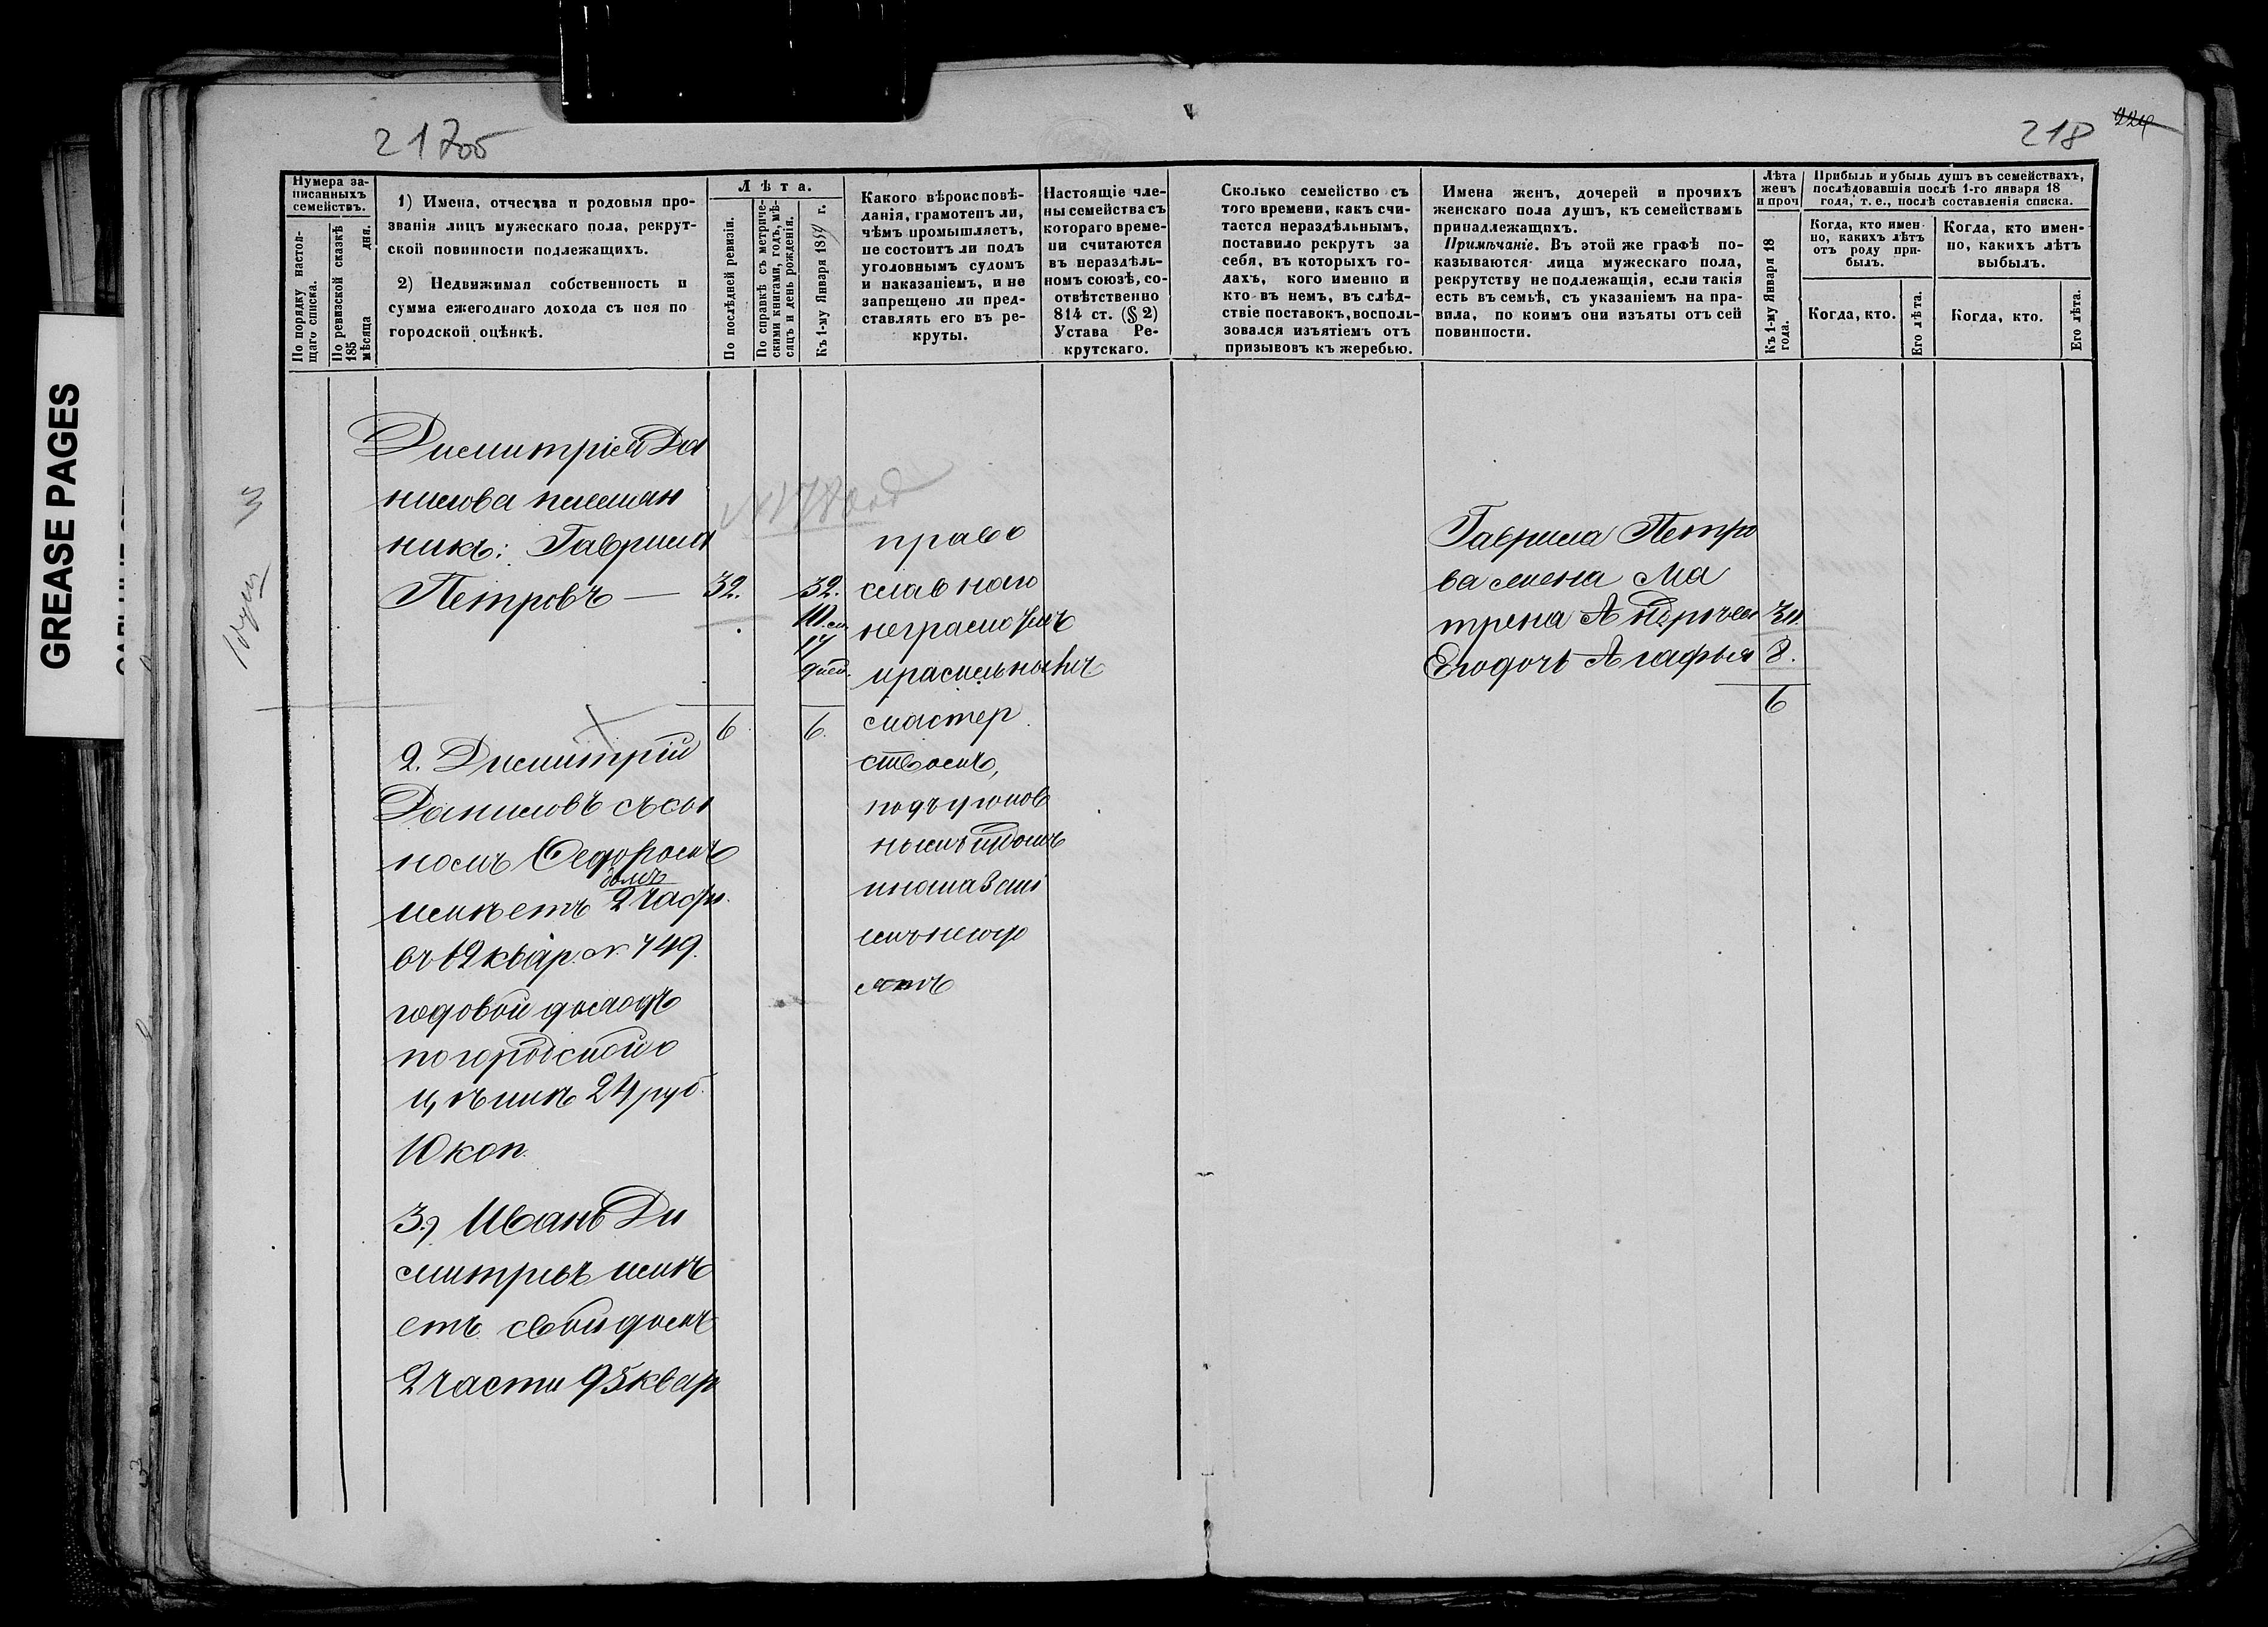 21705
218
224
Нумера за-
писанныхъ
семействъ.
По порядку настоя-
щаго списка.
По ревизской сказкѣ
185
мѣсяца дня.
1) Имена, отчества и родовыя про-
званія лицъ мужескаго пола, рекрут-
ской повинности подлежащихъ.
2) Недвижимая собственность и
сумма ежегоднаго дохода съ нея по
городской оцѣнкѣ.
Лѣта.
По послѣдней ревизіи.
По справкѣ съ метриче-
скими книгами, годъ, мѣ-
сяцъ и день рожденія.
Къ 1-му Января 1859 г.
Какого вѣроисповѣ-
данія, грамотенъ ли,
чѣмъ промышляетъ,
не состоитъ ли подъ
уголовнымъ судомъ
и наказаніемъ, и не
запрещено ли пред-
ставлять его въ ре-
круты.
Настоящіе чле-
ны семейства съ
котораго време-
ни считаются
въ нераздѣль-
номъ союзѣ, со-
отвѣтственно
814 ст. (§ 2)
Устава Ре-
крутскаго.
Сколько семейство съ
того времени, какъ счи-
тается нераздѣльнымъ,
поставило рекрутъ за
себя, въ которыхъ го-
дахъ, кого именно и
кто въ немъ, въ слѣд-
ствіе поставокъ, восполь-
зовался изъятіемъ отъ
призывовъ къ жеребью.
Имена женъ, дочерей и прочихъ
женскаго пола душъ, къ семействамъ
принадлежащихъ.
Примѣчаніе. Въ этой же графѣ по-
казываются лица мужескаго пола,
рекрутству не подлежащія, если такія
есть въ семьѣ, съ указаніемъ на пра-
вила, по коимъ они изъяты отъ сей
повинности.
Лѣта
женъ
и проч
Къ 1-му Января 18
года.
Прибыль и убыль душъ въ семействахъ,
послѣдовавшія послѣ 1-го января 18
года, т. е., послѣ составленія списка.
Когда, кто имен-
но, какихъ лѣтъ
отъ роду при-
былъ.
Когда, кто.
Его лѣта.
Когда, кто имен-
но, какихъ лѣтъ
выбылъ.
Когда, кто.
Его лѣта.
Димитрія Да
нилова племян
никъ: Гаврила
Петровъ — 32. 32.
10. м.
17
дней.
6 6.
2. Димитрій
Даниловъ съ сы
номъ Федоромъ
домъ
имѣетъ 2 части
въ 12 квар. № 749.
годовой доходъ
по городской о
цѣнкѣ 24 руб.
10 коп.
3.) Иванъ Ди
митріевъ имѣ
етъ свой домъ
2 части 95 квар
право
славнаго
неграмотенъ
красильнымъ
мастер
ствомъ,
подъ уголов
нымъ судомъ
и наказані
емъ не сос
итъ
Гаврила Петро
ва жена Ма
трена Андреева 30.
Его дочь Агафья 8.
6
GREASE PAGES